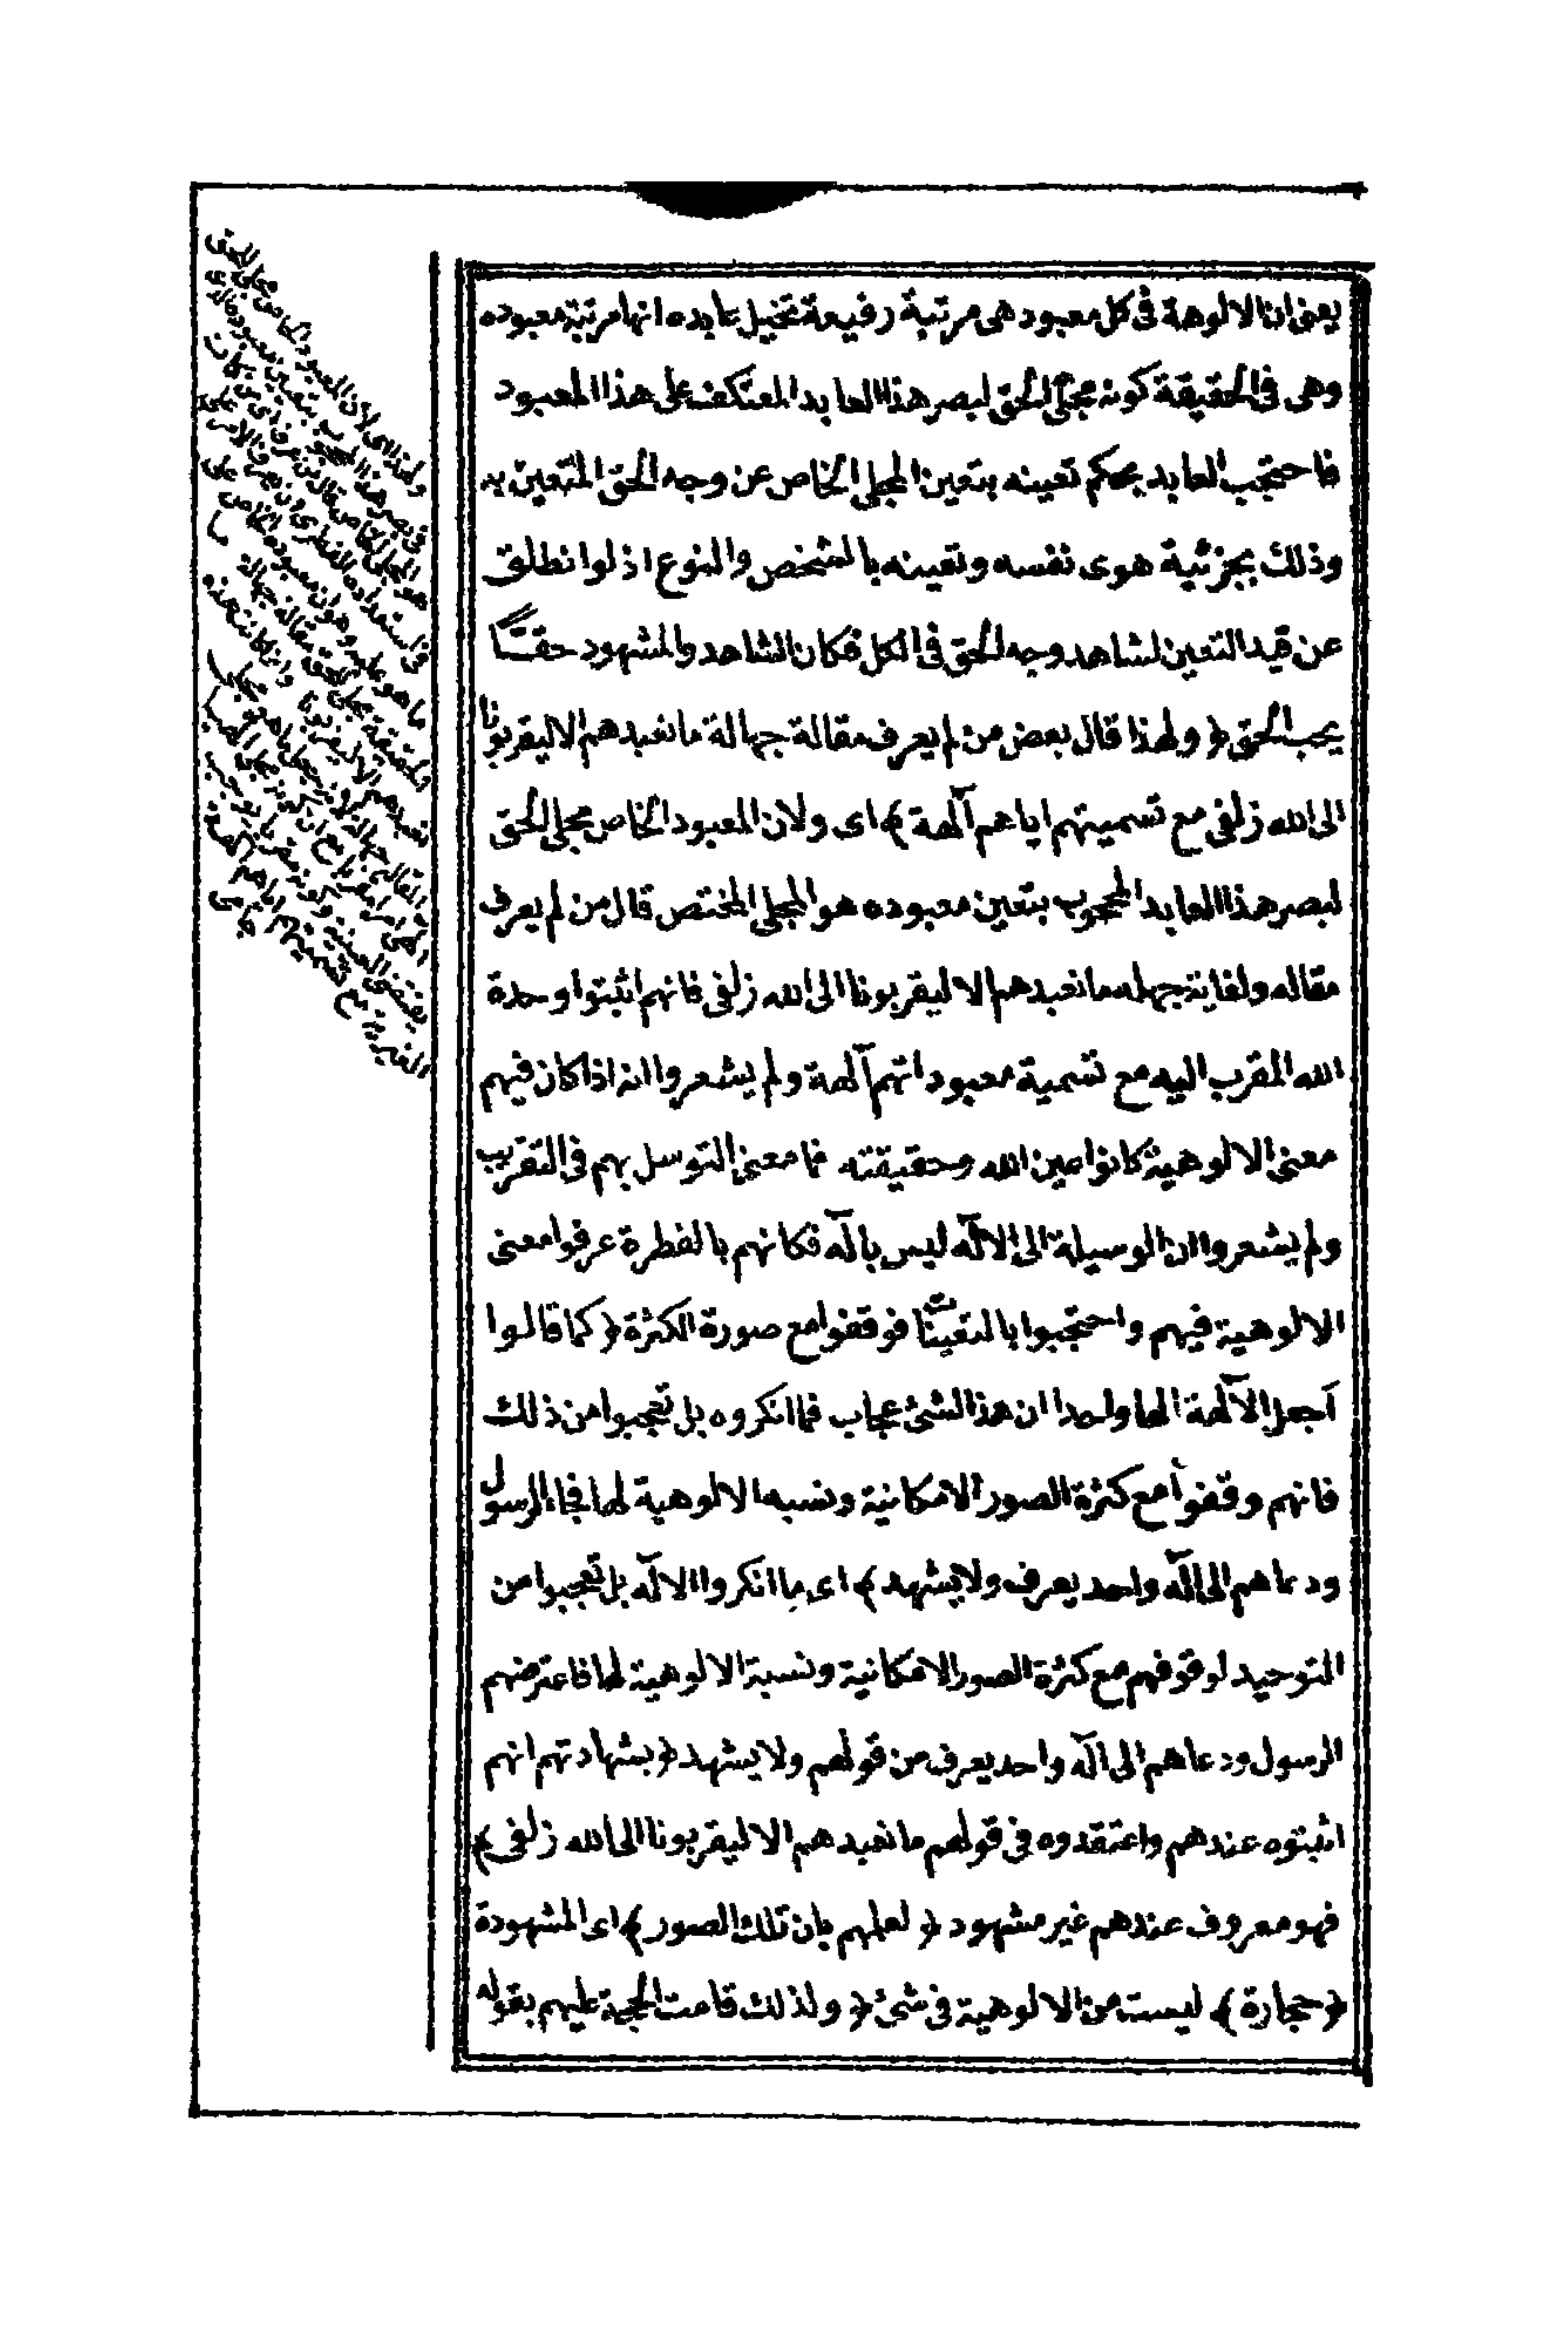 يعنى ان الالوهة فى كل معبود هى مرتبة رفيعة تخيل عابده انها مرتبة معبوده
وهى فى الحقيقة كونه مجلى الحق لبصر هذا العابد المعتكف على هذا المعبود
فاحتجب العابد بحكم تعينه بتعين المجلى الخاص عن وجه الحق المتعين به
وذلك بجزئية هوى نفسه وتعينه بالشخص والنوع اذ لو انطلق
عن قيد التعين لشاهد وجه الحق فى الكل فكان الشاهد والمشهود حقا
يحب الحق ﴿ ولهذا قال بعض من لم يعرف مقالة جهالة ما نعبدهم الا ليقربونا
الى الله زلفى مع تسميتهم اياهم آلهة ﴾ اى ولان المعبود الخاص مجلى الحق
لبصر هذا العابد المحجوب بتعين معبوده هو المجلى المختص قال من لم يعرف
مقاله ولغاية جهله ما نعبدهم الا ليقربونا الى الله زلفى فانهم اثبتوا وحدة
الله المقرب اليه مع تسمية معبوداتهم آلهة ولم يشعروا انه اذا كان فيهم
معنى الالوهية كانوا عين الله وحقيقته فما معنى التوسل بهم فى التقريب
ولم يشعروا ان الوسيلة الى الاله ليس باله فكانهم بالفطرة عرفوا معنى
الالوهية فيهم واحتجبوا بالتعينات فوقفوا مع صورة الكثرة ﴿ كما قالوا
آجعل الآلهة الها واحدا ان هذا لشئ عجاب فما انكروه بل تعجبوا من ذلك
فانهم وقفوا مع كثرة الصور الامكانية ونسبه الالوهية لها فجاء الرسول
ودعاهم الى اله واحد يعرف ولا يشهد ﴾ اى ما انكروا الاله بل تعجبوا من
التوحيد لوقوفهم مع كثرة الصور الامكانية ونسبة الالوهية لها فاعترضهم
الرسول ودعاهم الى اله واحد يعرف من قولهم ولا يشهد ﴿ بشهادتهم انهم
اثبتوه عندهم واعتقدوه فى قولهم ما نعبدهم الا ليقربونا الى الله زلفى ﴾
فهو معروف عندهم غير مشهود ﴿ لعلمهم بان تلك الصور ﴾ اى المشهودة
﴿ حجارة ﴾ ليست من الالوهية فى شئ ﴿ ولذلك قامت الحجة عليهم بقوله